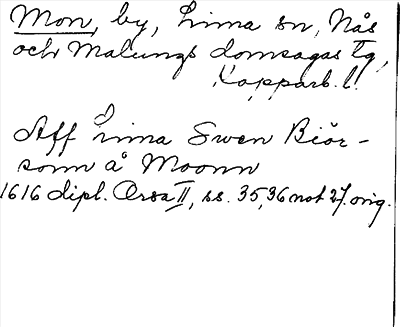 Mon, by, Lima sn, Nås
och Malungs domsagas tg,
Kopparb. l.
Aff Lima Swen Biör-
sonn å Moonn
1616 dipl. Orsa II, ss. 35, 36 not 27. orig.